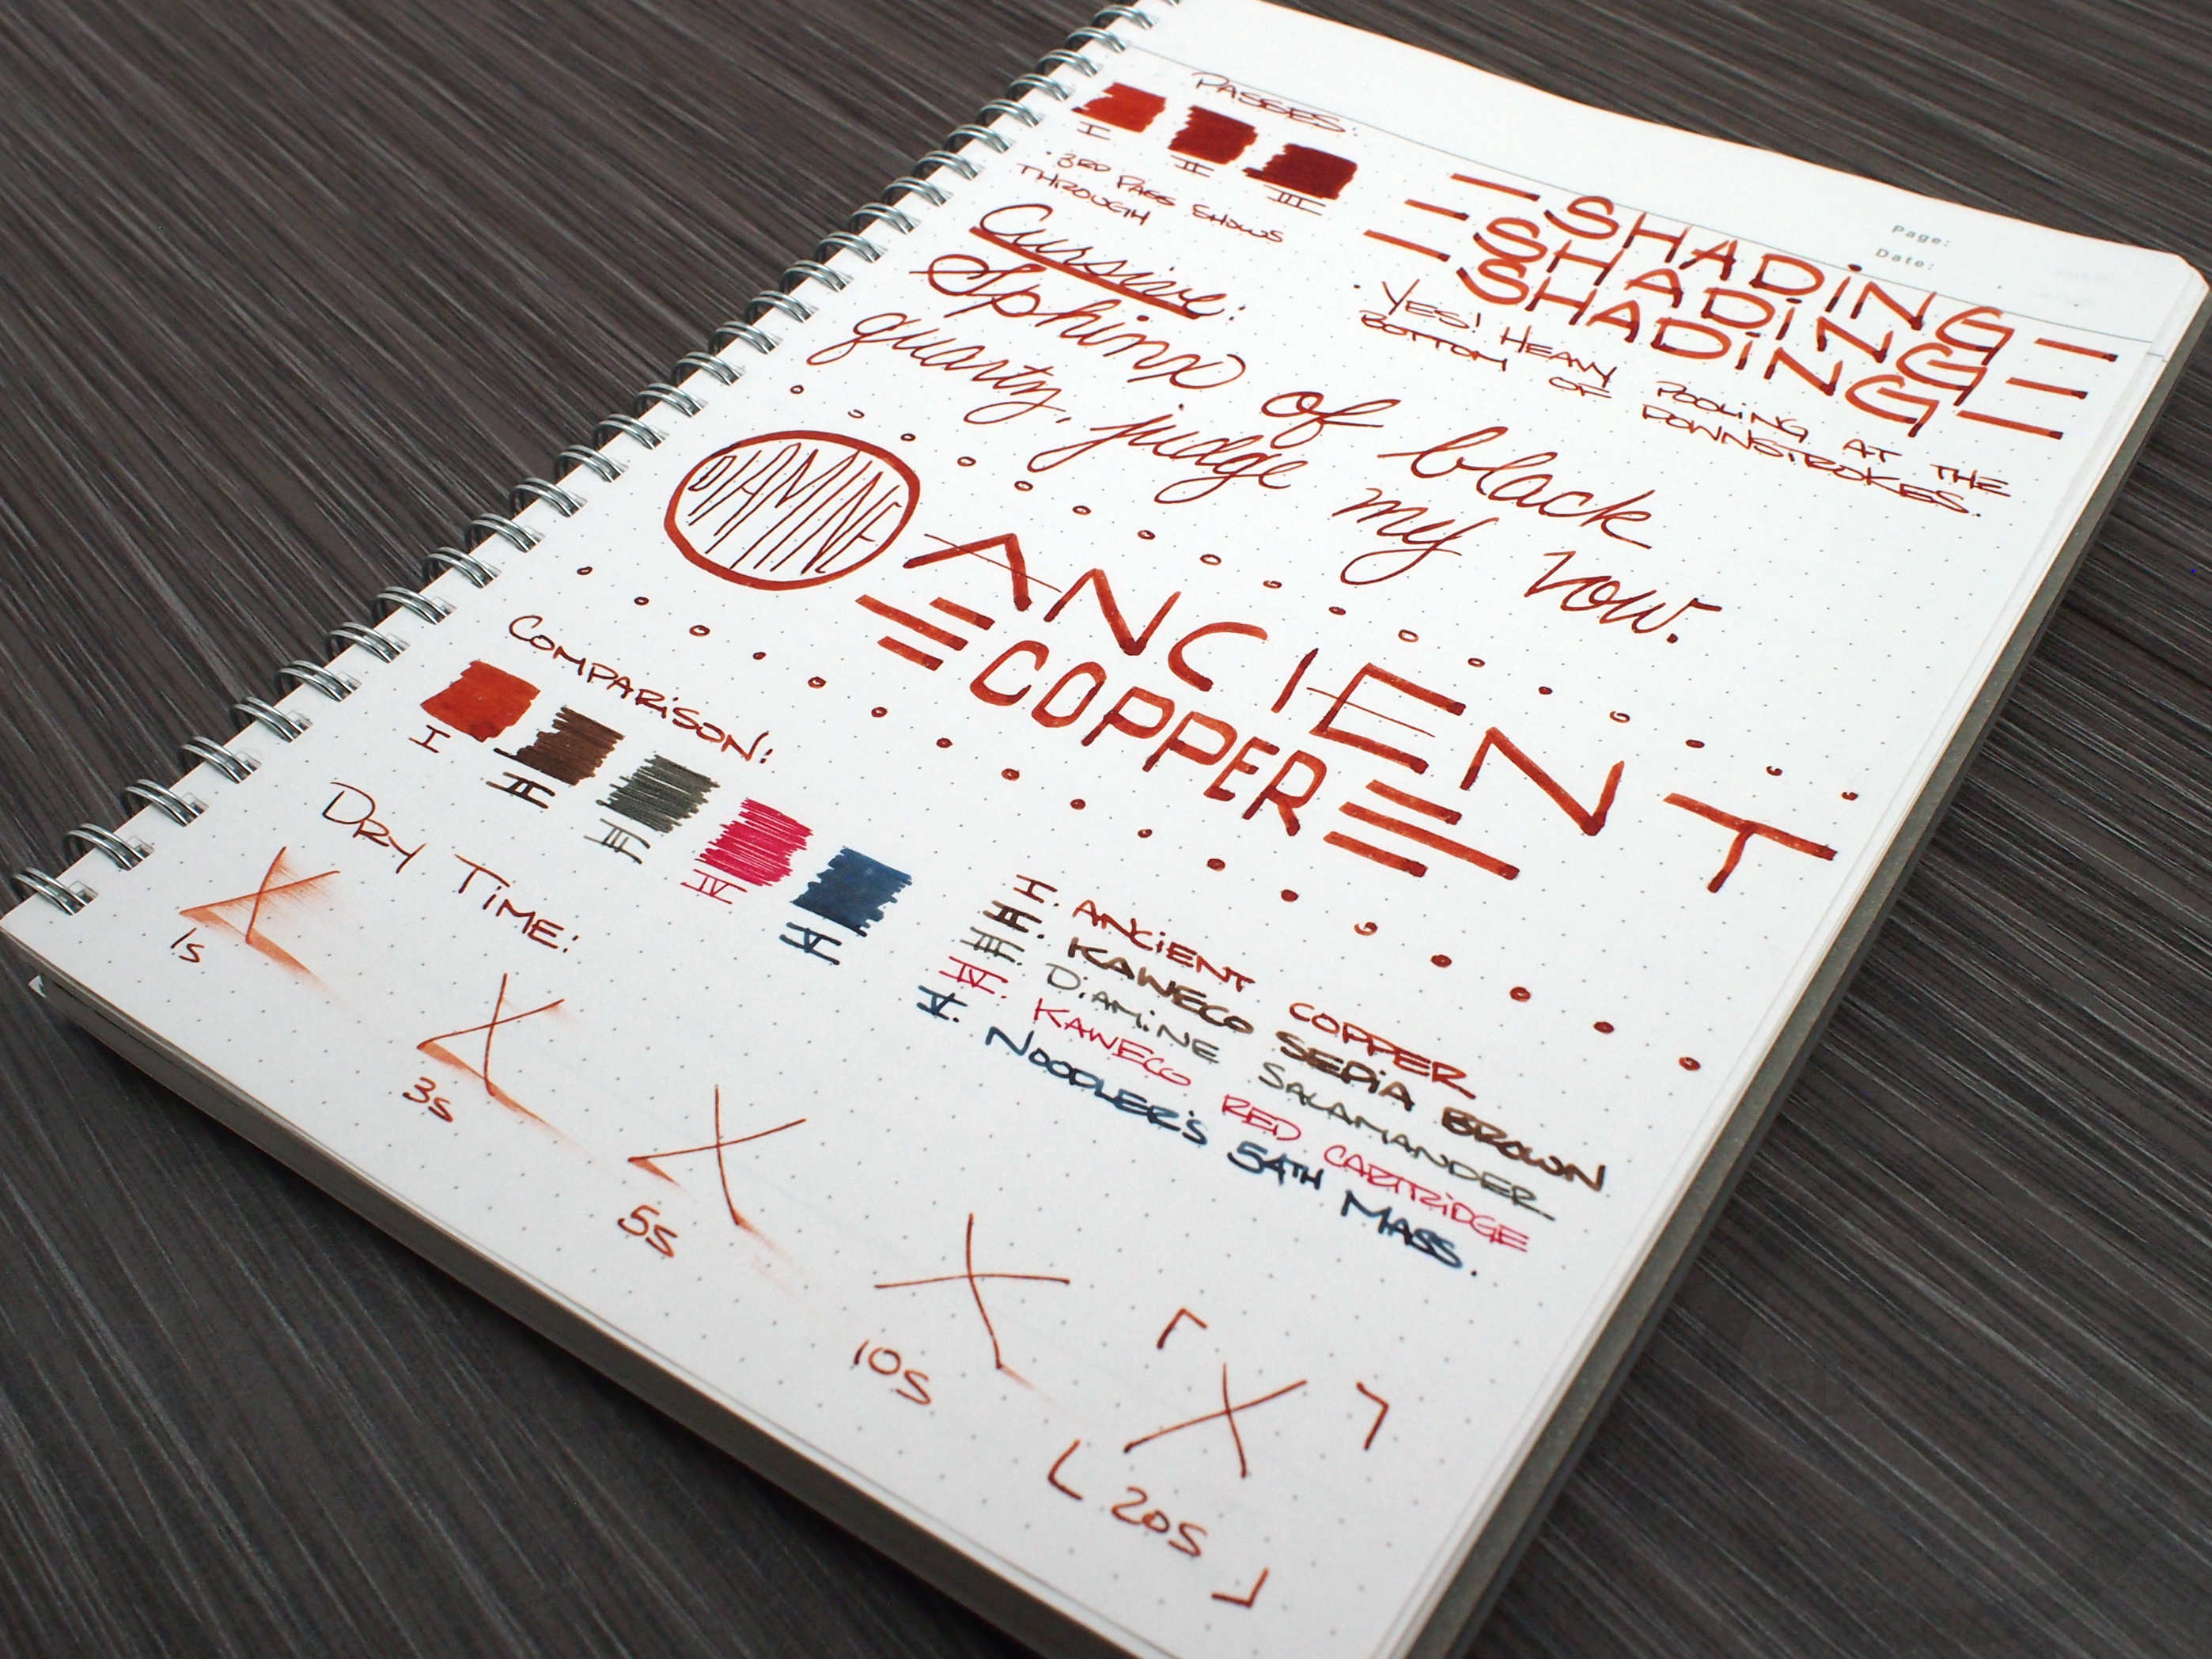 PASSES:
I
II
III
· 3RD PASS SHOWS
THROUGH
Page:
Date:
- SHADiNG -
- SHADiNG -
- SHADiNG -
· YES! HEAVY POOLING AT THE
BOTTOM OF DOWNSTROKES.
Cursive:
Sphinx of black
quartz, judge my vow.
DIAMINE
ANCIENT
COPPER
COMPARiSON:
I
II
III
IV
V
I. ANCiENT COPPER
II. KAWECO SEPiA BROWN
III. DiAMiNE SALAMANDER
IV. KAWECO RED CARTRiDGE
V. NOODLER'S 54TH MASS.
DRY TiME:
1S
3S
5S
10S
20S